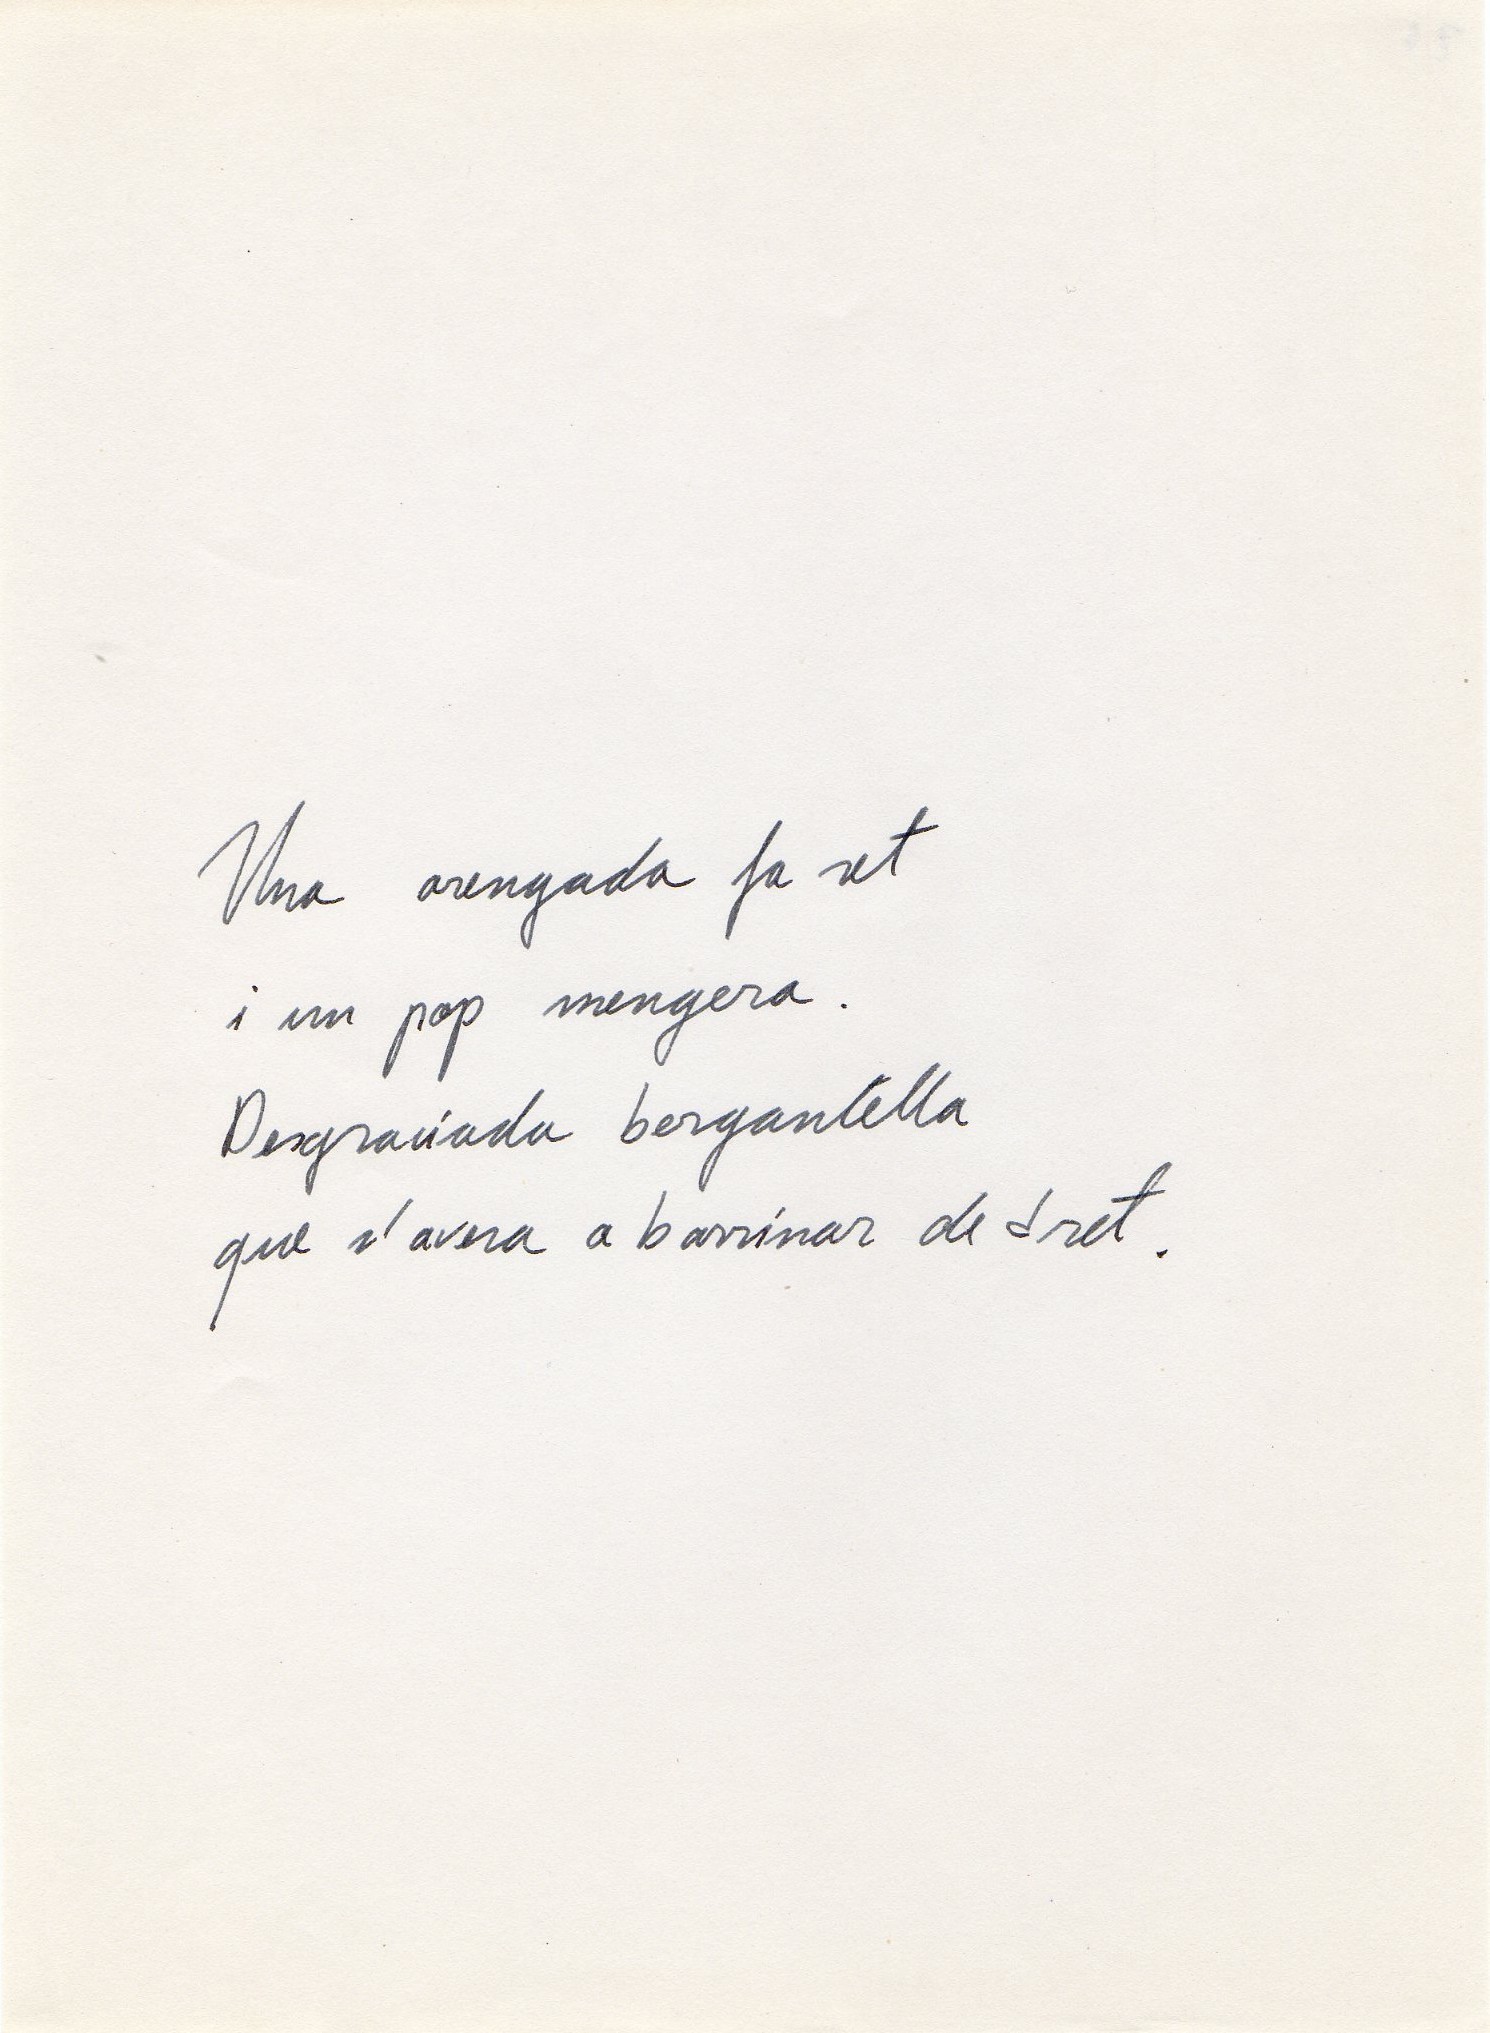 Una arengada fa set
i un pop mengera.
Desgraciada bergantella
que s'avesa a barrinar de dret.